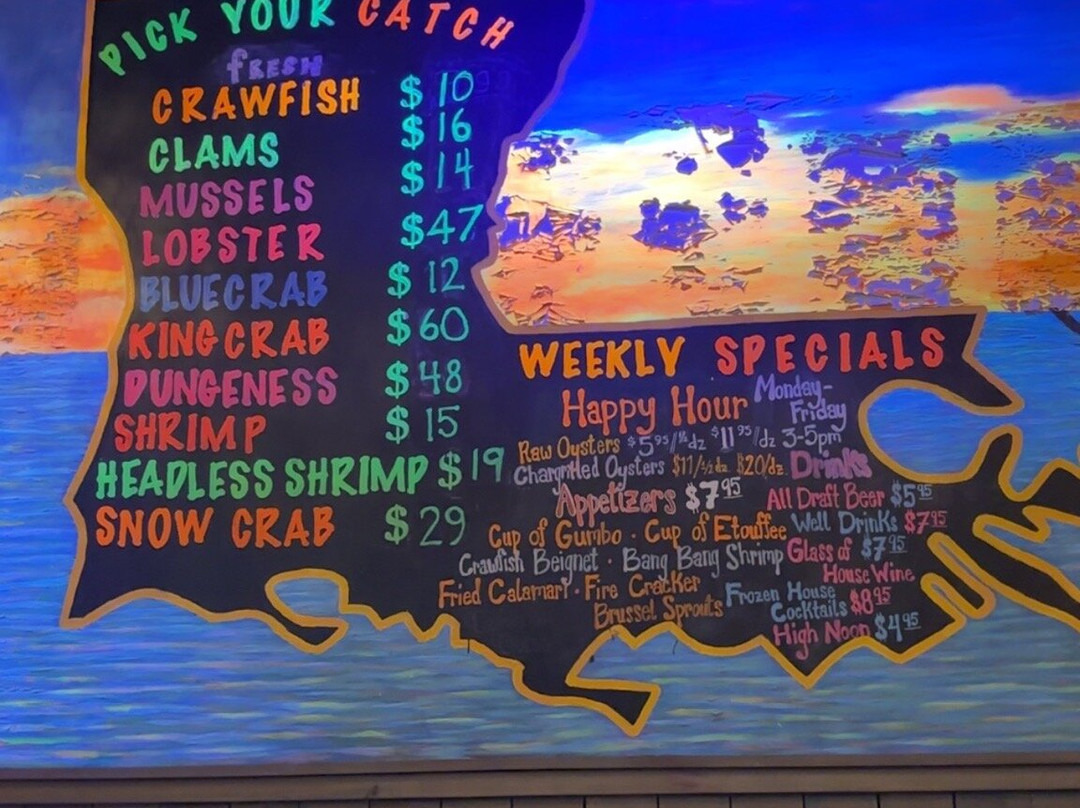 PICK YOUR CATCH
fRESH
CRAWFISH $10
CLAMS $16
MUSSELS $14
LOBSTER $47
BLUECRAB $12
KING CRAB $60
DUNGENESS $48
SHRIMP $15
HEADLESS SHRIMP $19
SNOW CRAB $29
WEEKLY SPECIALS
Happy Hour Monday-Friday
Raw Oysters $5.95/½dz $11.95/dz 3-5pm
Chargrilled Oysters $11/½dz. $20/dz.
Appetizers $7.95
Cup of Gumbo · Cup of Etouffee
Crawfish Beignet · Bang Bang Shrimp
Fried Calamari · Fire Cracker
Brussel Sprouts
Drinks
All Draft Beer $5.95
Well Drinks $7.95
Glass of $7.95
House Wine
Frozen House
Cocktails $8.95
High Noon $4.95